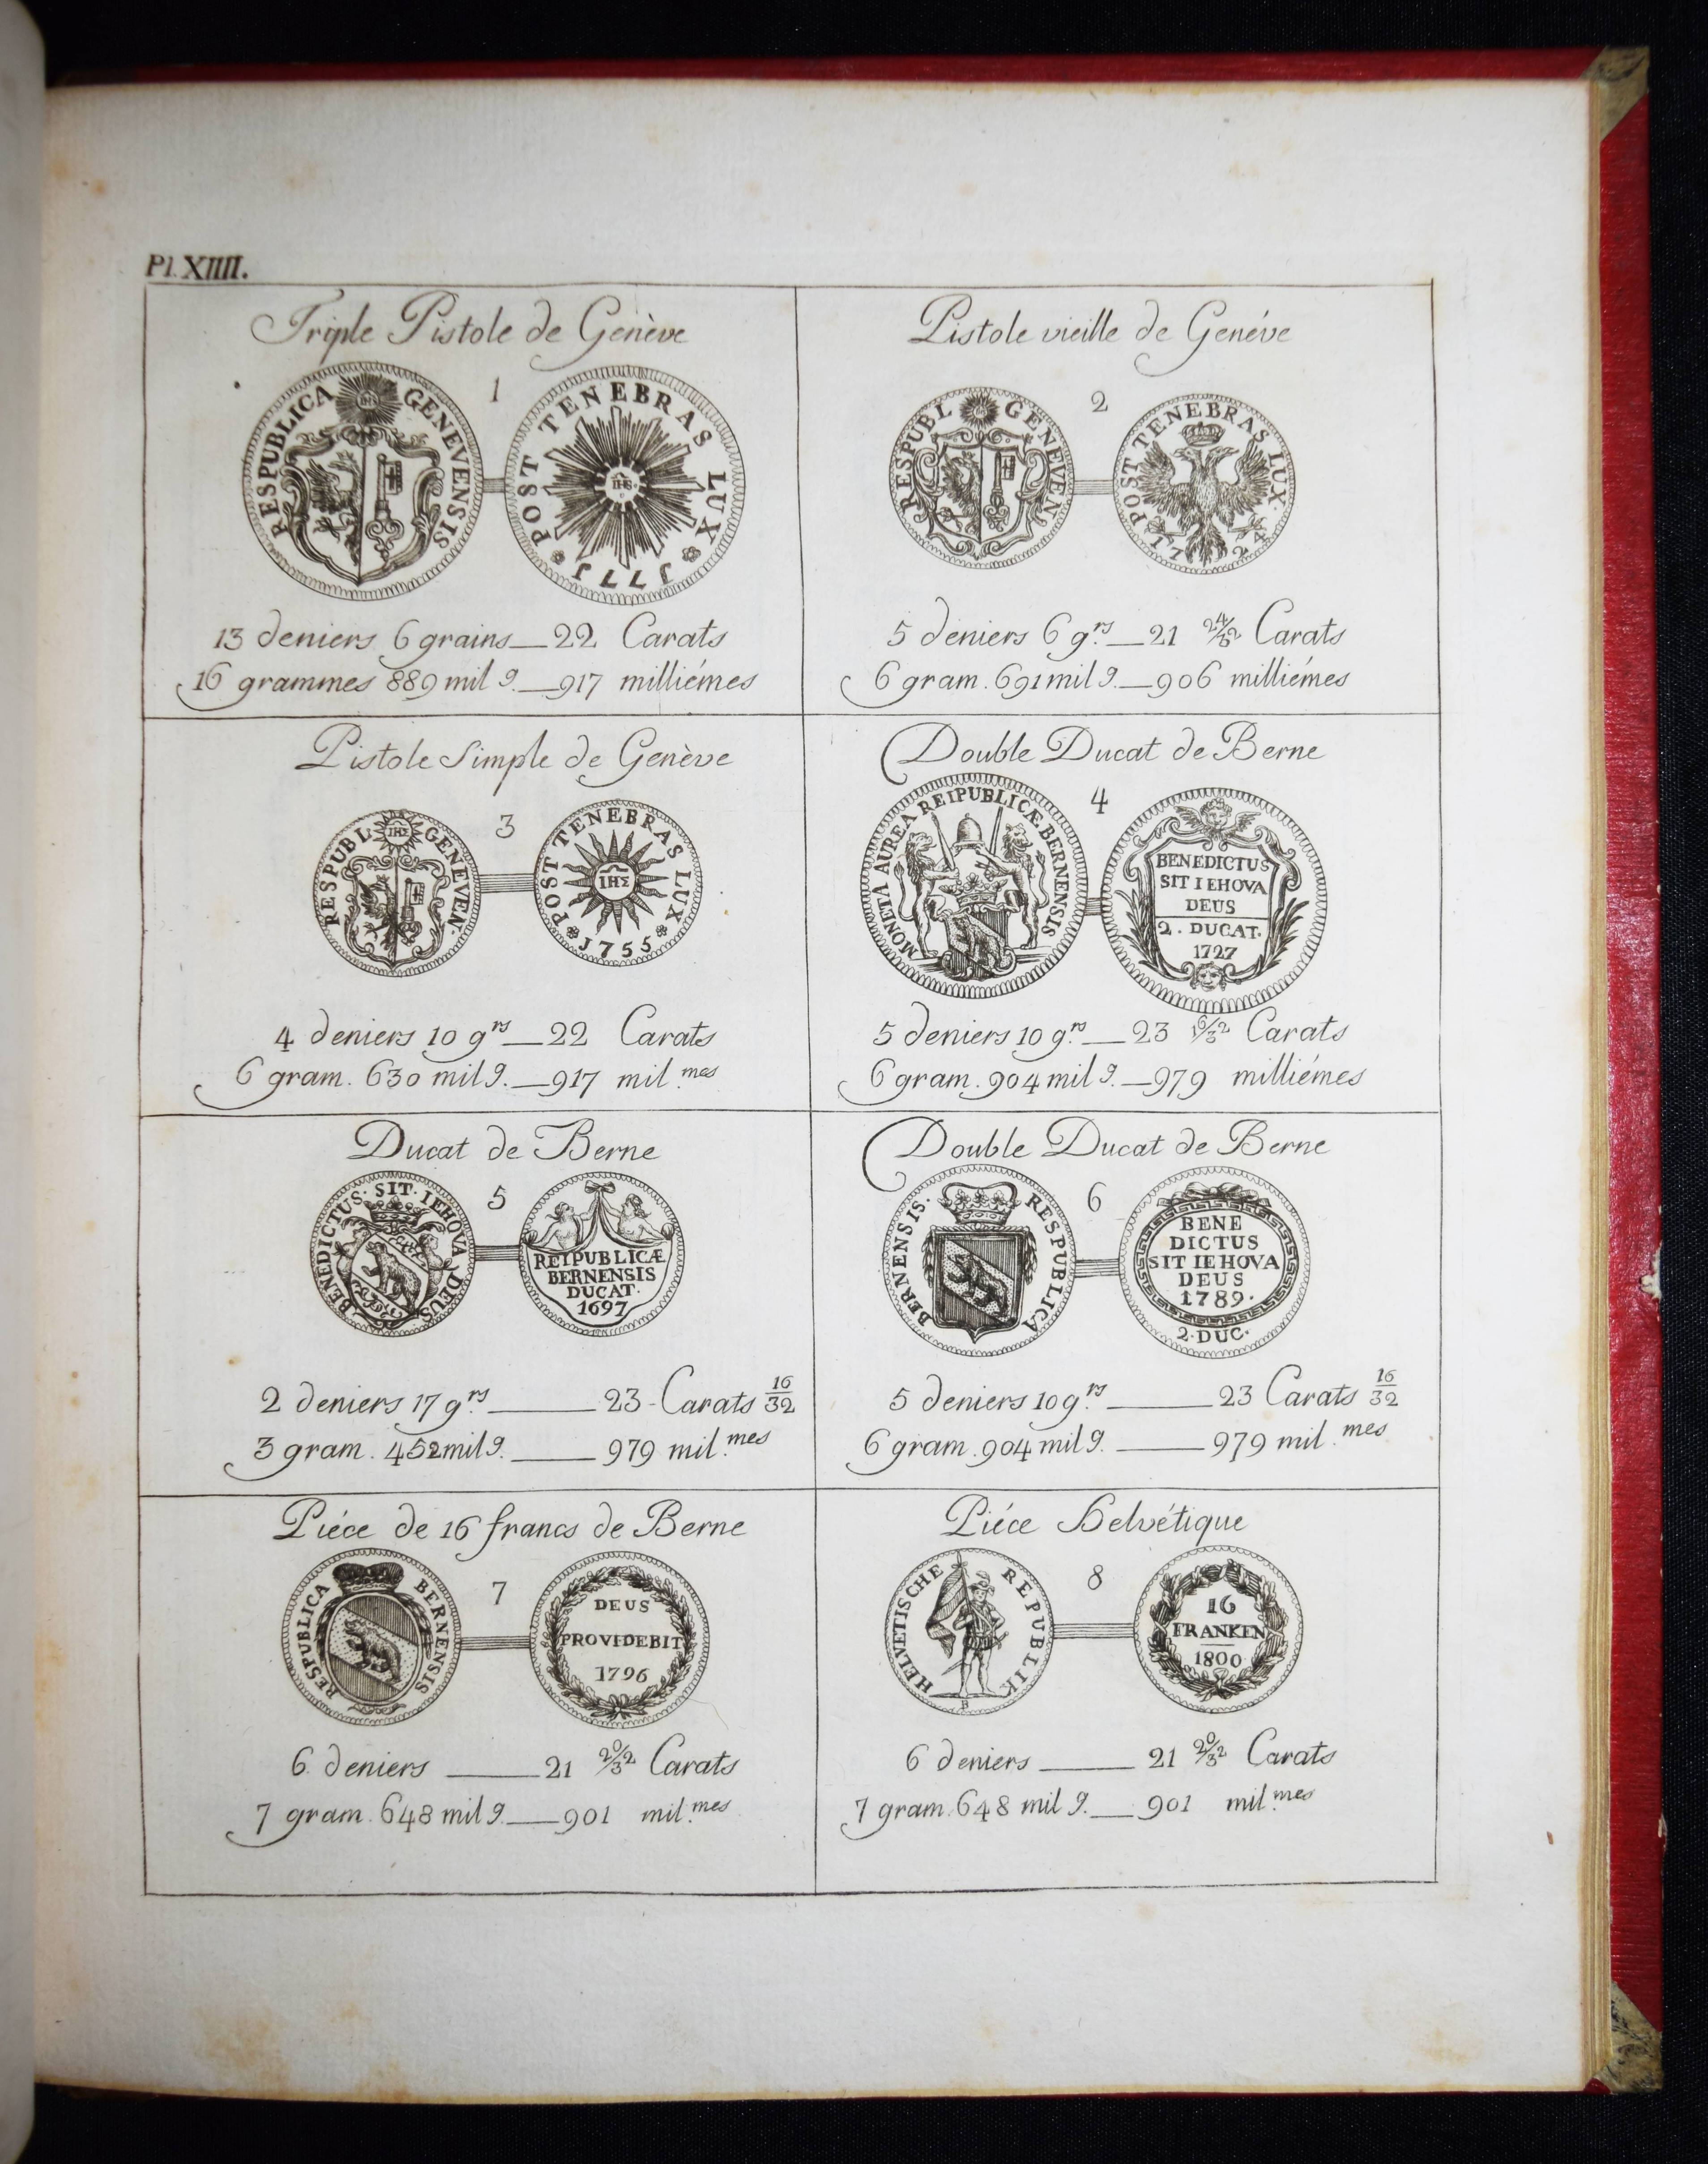 Pl. XIIII.
Triple Pistole de Genève
1
RESPUBLICA GENEVENSIS
POST TENEBRAS LUX
1771
13 deniers 6 grains — 22 Carats
16 grammes 889 mil g. — 917 milliémes
Pistole vieille de Genéve
2
RESPUBL GENEVEN
POST TENEBRAS LUX.
1724
5 deniers 6 g.rs — 21 24/32 Carats
6 gram. 691 mil g. — 906 milliémes
Pistole Simple de Genève
3
RESPUBL GENEVEN.
IHΣ
POST TENEBRAS LUX
IHΣ
1755
4 deniers 10 grs — 22 Carats
6 gram. 630 mil g. — 917 mil.mes
Double Ducat de Berne
4
MONETA AUREA REIPUBLICÆ BERNENSIS
BENEDICTUS
SIT IEHOVA
DEUS
2. DUCAT.
1727
5 deniers 10 g.rs — 23 16/32 Carats
6 gram. 904 mil g. — 979 milliémes
Ducat de Berne
5
BENEDICTUS · SIT · IEHOVA DEUS
REIPUBLICÆ
BERNENSIS
DUCAT.
1697
2 deniers 17 g.rs — 23 - Carats 16/32
3 gram. 452 mil g. — 979 mil.mes
Double Ducat de Berne
6
BERNENSIS. RESPUBLICA
BENE
DICTUS
SIT IEHOVA
DEUS
1789.
2. DUC.
5 deniers 10 g.rs — 23 Carats 16/32
6 gram. 904 mil g. — 979 mil.mes
Piéce de 16 francs de Berne
7
RESPUBLICA BERNENSIS
DEUS
PROVIDEBIT
1796
6 deniers — 21 20/32 Carats
7 gram. 648 mil g. — 901 mil.mes
Piéce Helvétique
8
HELVETISCHE REPUBLIK
B
16
FRANKEN
1800
6 deniers — 21 20/32 Carats
7 gram. 648 mil g. — 901 mil.mes